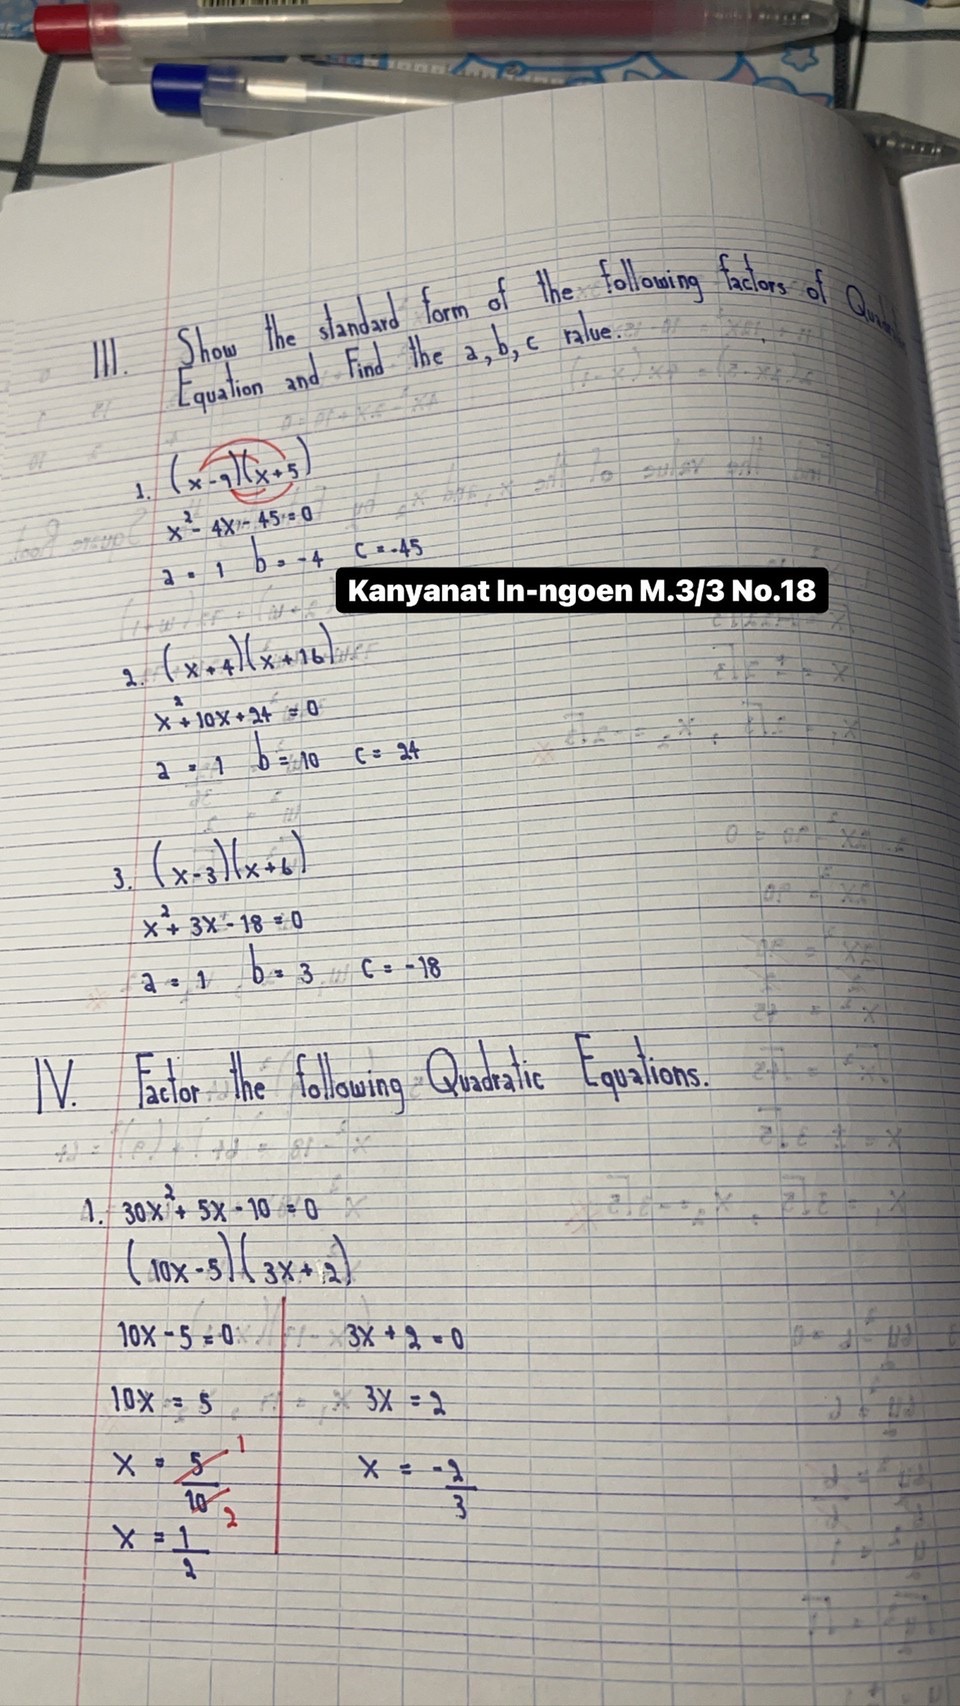 III. Show the standard form of the following factors of
Equation and Find the a, b, c value.
1. (x-9)(x+5)
x² - 4x - 45 = 0
a = 1 b = -4 c = -45
Kanyanat In-ngoen M.3/3 No.18
2. (x+4)(x+16)
x² + 10x + 24 = 0
a = 1 b = 10 c = 24
3. (x-3)(x+6)
x² + 3x - 18 = 0
a = 1 b = 3 c = -18
IV. Factor the following Quadratic Equations.
1. 30x² + 5x - 10 = 0
(10x-5)(3x+2)
10x - 5 = 0 3x + 2 = 0
10x = 5 3x = 2
x = 5/10 1 2 x = -2/3
x = 1/2